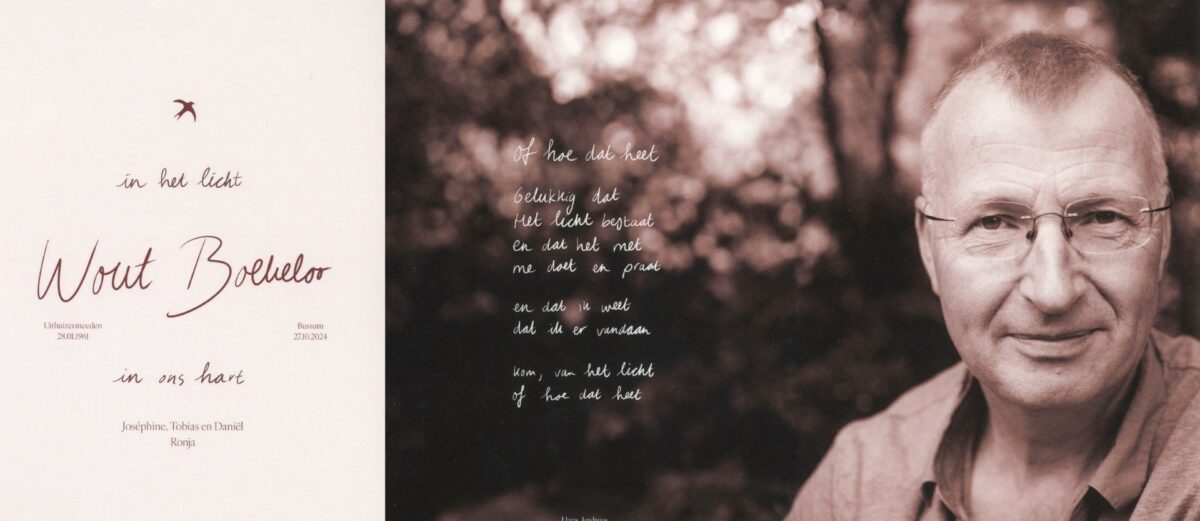 in het licht
Wout Boekeloo
Uithuizermeeden
28.01.1961
Bussum
27.10.2024
in ons hart
Joséphine, Tobias en Daniël
Ronja
Of hoe dat heet
Gelukkig dat
Het licht bestaat
en dat het met
me doet en praat
en dat ik weet
dat ik er vandaan
kom, van het licht
of hoe dat heet
Hans Andreus